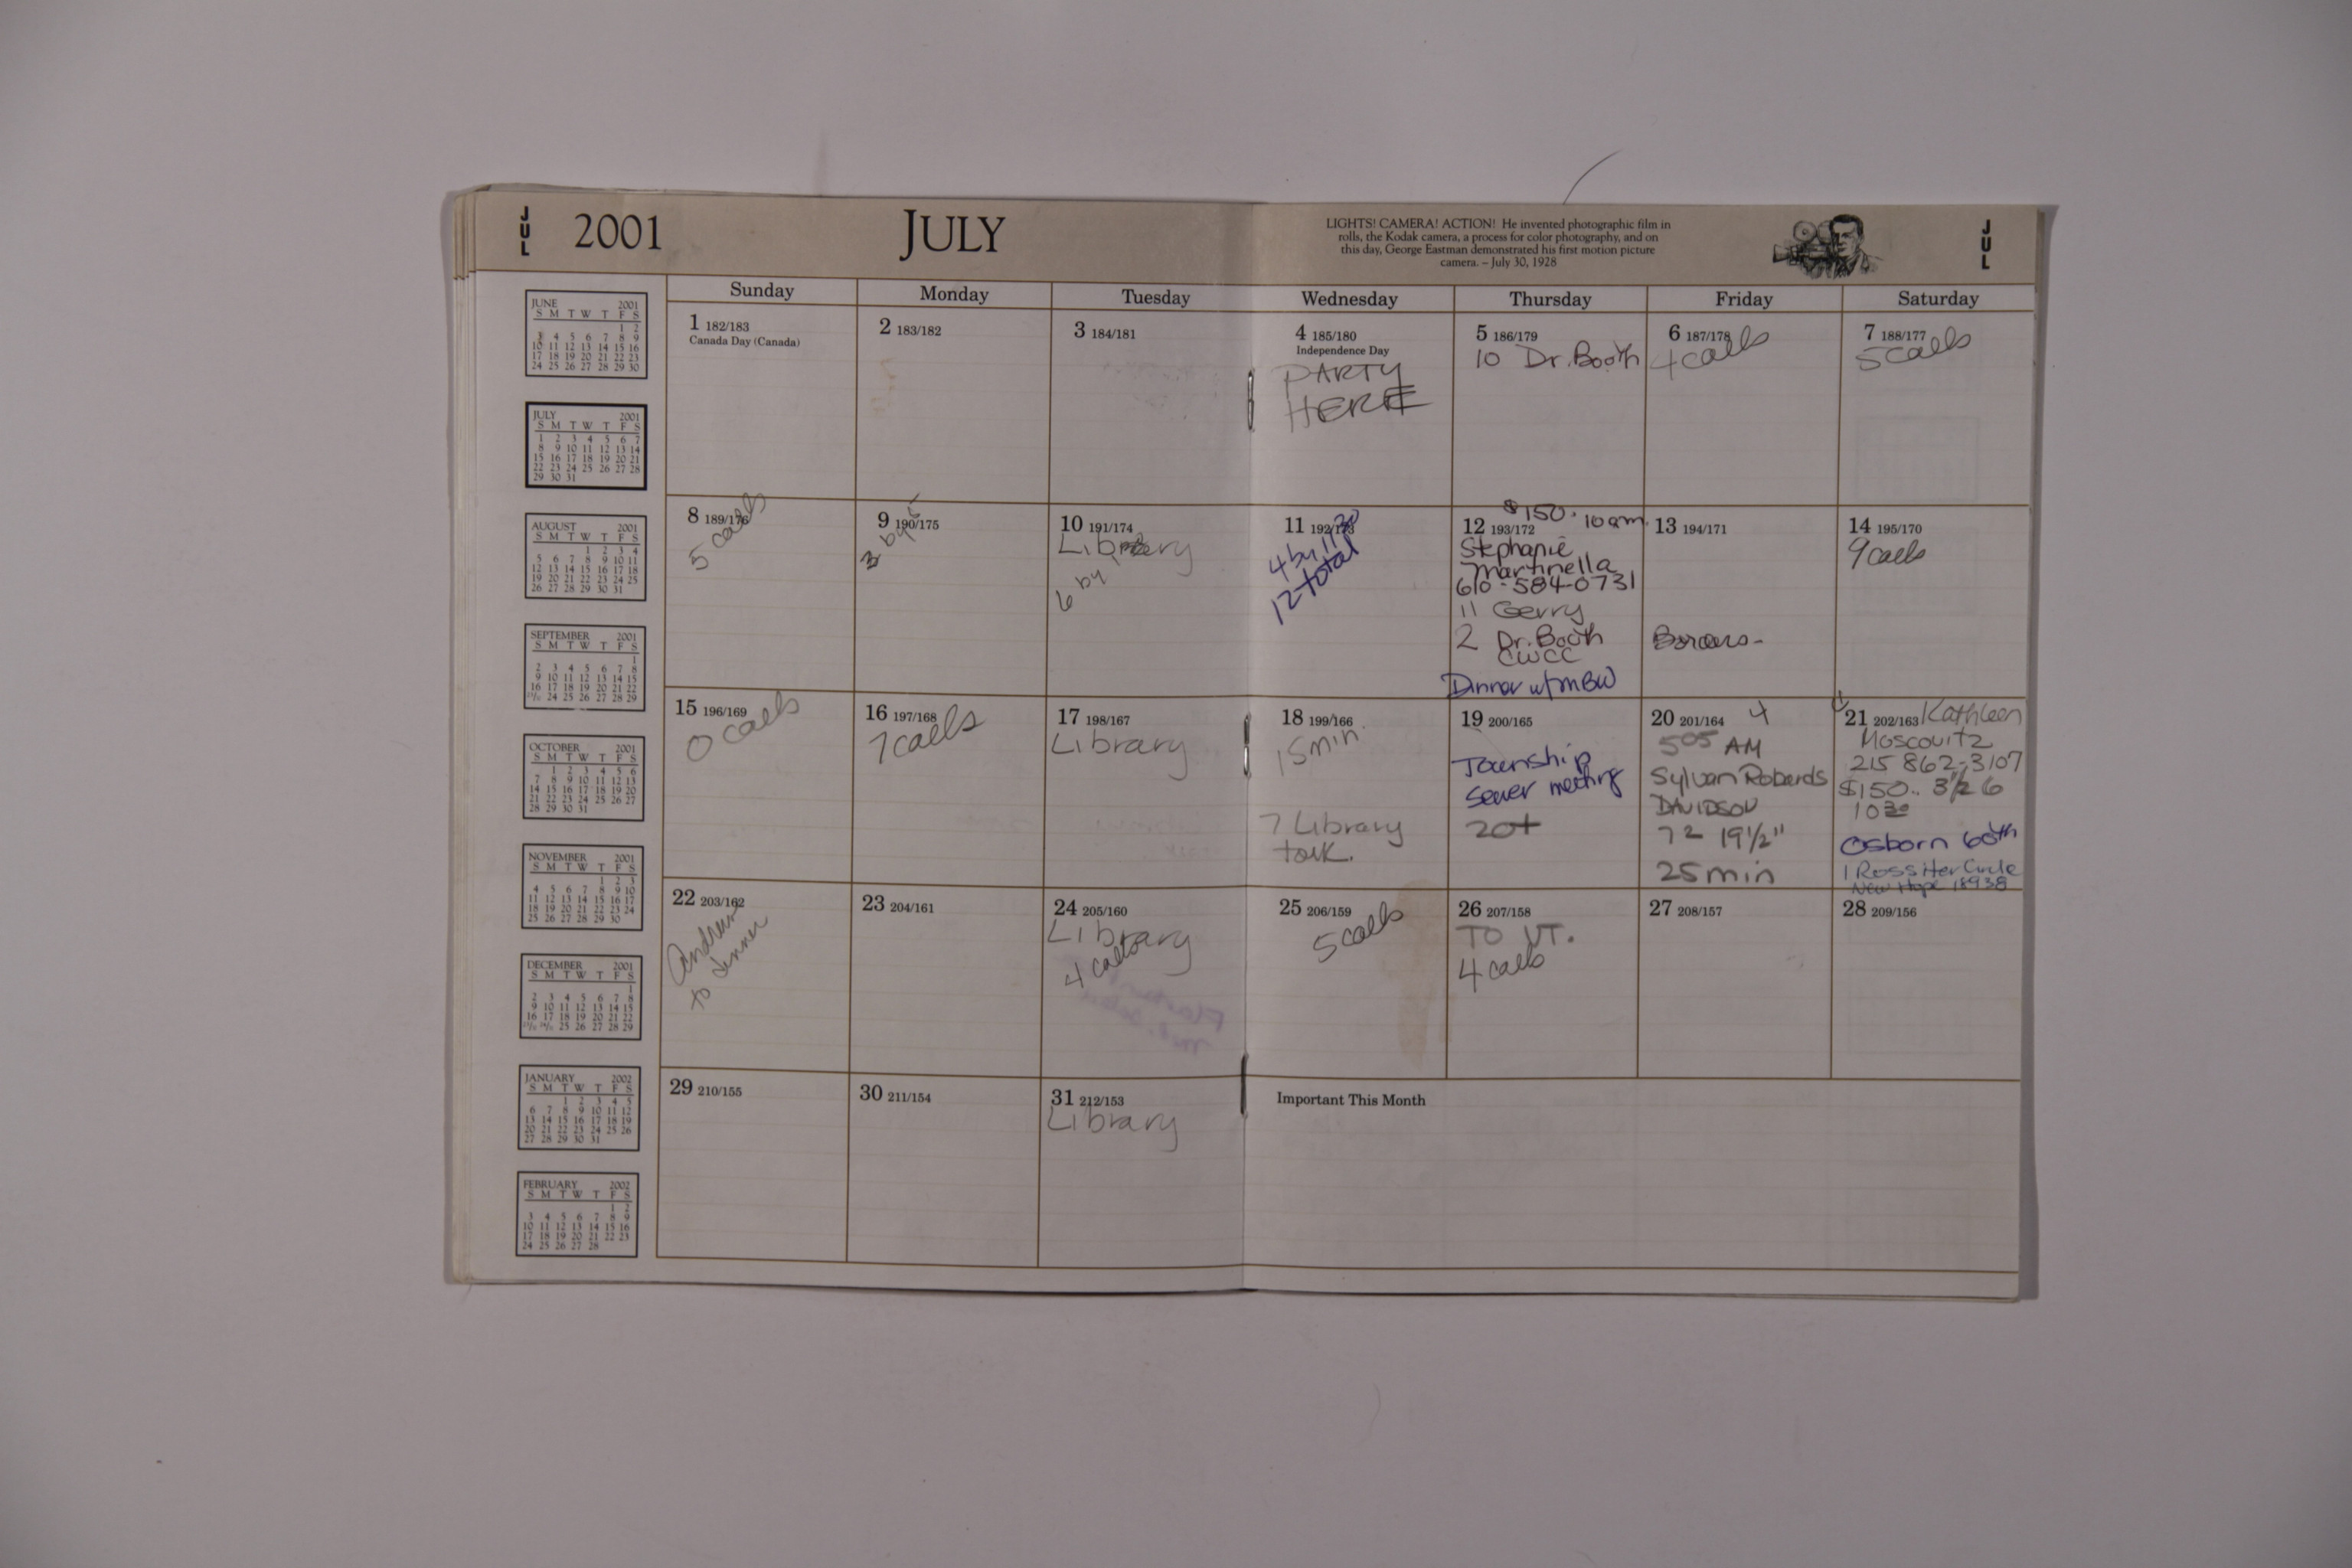 JUL
2001
JULY
LIGHTS! CAMERA! ACTION! He invented photographic film in
rolls, the Kodak camera, a process for color photography, and on
this day, George Eastman demonstrated his first motion picture
camera. – July 30, 1928
JUL
Sunday Monday Tuesday Wednesday Thursday Friday Saturday
1 182/183
Canada Day (Canada)
2 183/182
3 184/181
4 185/180
Independence Day
PARTY
HERE
5 186/179
10 Dr. Booth
6 187/178
4 calls
7 188/177
5 calls
8 189/176
5 calls
9 190/175
3 by 5
10 191/174
Library
6 by
11 192/173
4 by 11 30
12 total
12 193/172
$150. 10am.
Stephanie
Martinella
610-584-0731
11 Gerry
2 Dr. Booth
CWCC
Dinner w/ MBW
13 194/171
14 195/170
9 calls
15 196/169
0 calls
16 197/168
7 calls
17 198/167
Library
18 199/166
15 min.
7 Library
talk.
19 200/165
Township
sewer meeting
20+
20 201/164 4
5 05 AM
Sylvan Roberds
DAVIDSON
72 19 1/2"
25 min
21 202/163 Kathleen
Moscovitz
215 862-3107
$150.. 3 1/2 6
10 30
Osborn 60th
1 Rossiter Circle
New Hope 18938
22 203/162
Andrew
to dinner
23 204/161
24 205/160
Library
4 calls
25 206/159
5 calls
26 207/158
TO VT.
4 calls
27 208/157
28 209/156
29 210/155
30 211/154
31 212/153
Library
Important This Month
JUNE 2001
S M T W T F S
1 2
3 4 5 6 7 8 9
10 11 12 13 14 15 16
17 18 19 20 21 22 23
24 25 26 27 28 29 30
JULY 2001
S M T W T F S
1 2 3 4 5 6 7
8 9 10 11 12 13 14
15 16 17 18 19 20 21
22 23 24 25 26 27 28
29 30 31
AUGUST 2001
S M T W T F S
1 2 3 4
5 6 7 8 9 10 11
12 13 14 15 16 17 18
19 20 21 22 23 24 25
26 27 28 29 30 31
SEPTEMBER 2001
S M T W T F S
1
2 3 4 5 6 7 8
9 10 11 12 13 14 15
16 17 18 19 20 21 22
23/30 24 25 26 27 28 29
OCTOBER 2001
S M T W T F S
1 2 3 4 5 6
7 8 9 10 11 12 13
14 15 16 17 18 19 20
21 22 23 24 25 26 27
28 29 30 31
NOVEMBER 2001
S M T W T F S
1 2 3
4 5 6 7 8 9 10
11 12 13 14 15 16 17
18 19 20 21 22 23 24
25 26 27 28 29 30
DECEMBER 2001
S M T W T F S
1
2 3 4 5 6 7 8
9 10 11 12 13 14 15
16 17 18 19 20 21 22
23/30 24/31 25 26 27 28 29
JANUARY 2002
S M T W T F S
1 2 3 4 5
6 7 8 9 10 11 12
13 14 15 16 17 18 19
20 21 22 23 24 25 26
27 28 29 30 31
FEBRUARY 2002
S M T W T F S
1 2
3 4 5 6 7 8 9
10 11 12 13 14 15 16
17 18 19 20 21 22 23
24 25 26 27 28